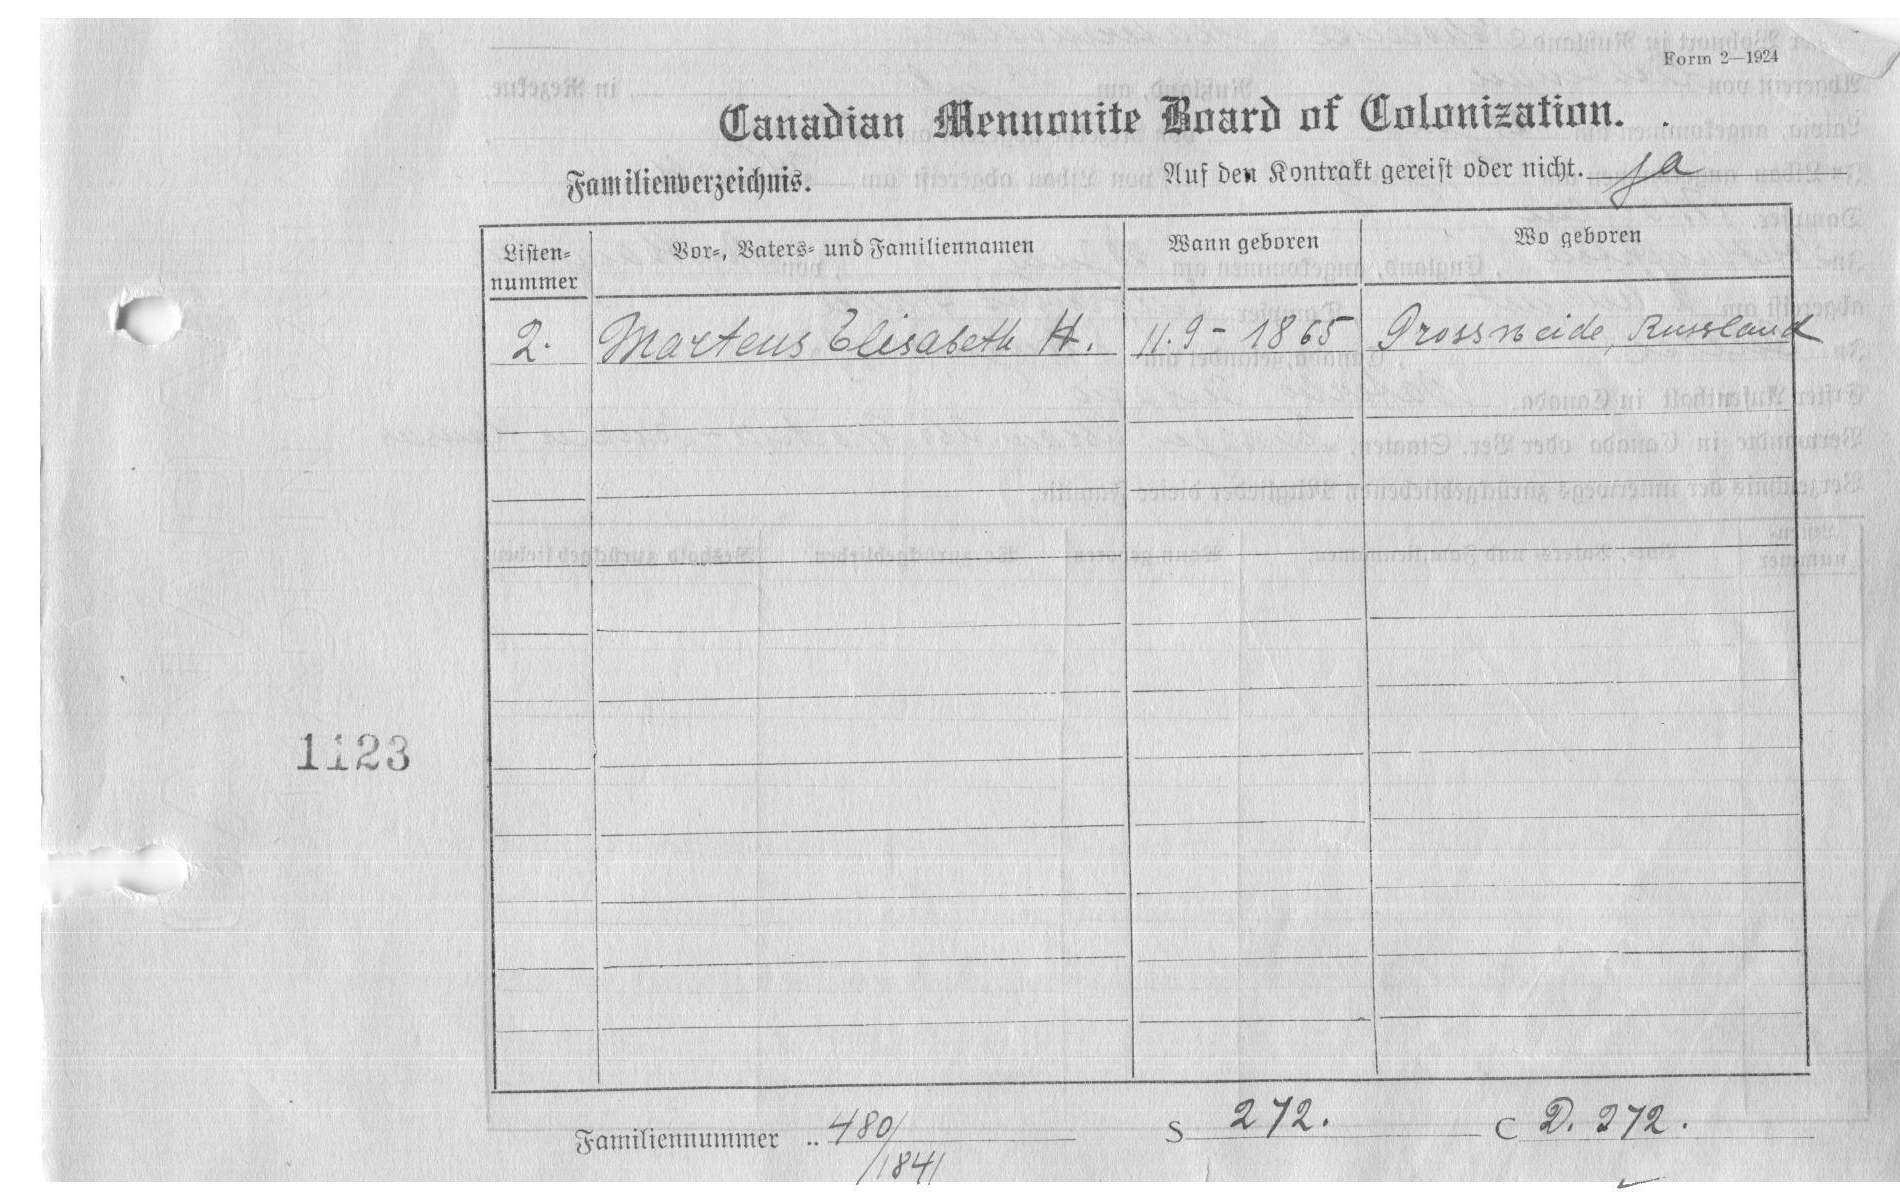 Form 2—1924
Canadian Mennonite Board of Colonization.
Familienverzeichnis. Auf den Kontrakt gereist oder nicht. ja
Listen-nummer Vor-, Vaters- und Familiennamen Wann geboren Wo geboren
2. Martens Elisabeth H. 11.9-1865 Grossweide, Russland
1123
Familiennummer .. 480/ S 272. C D. 272.
/1841